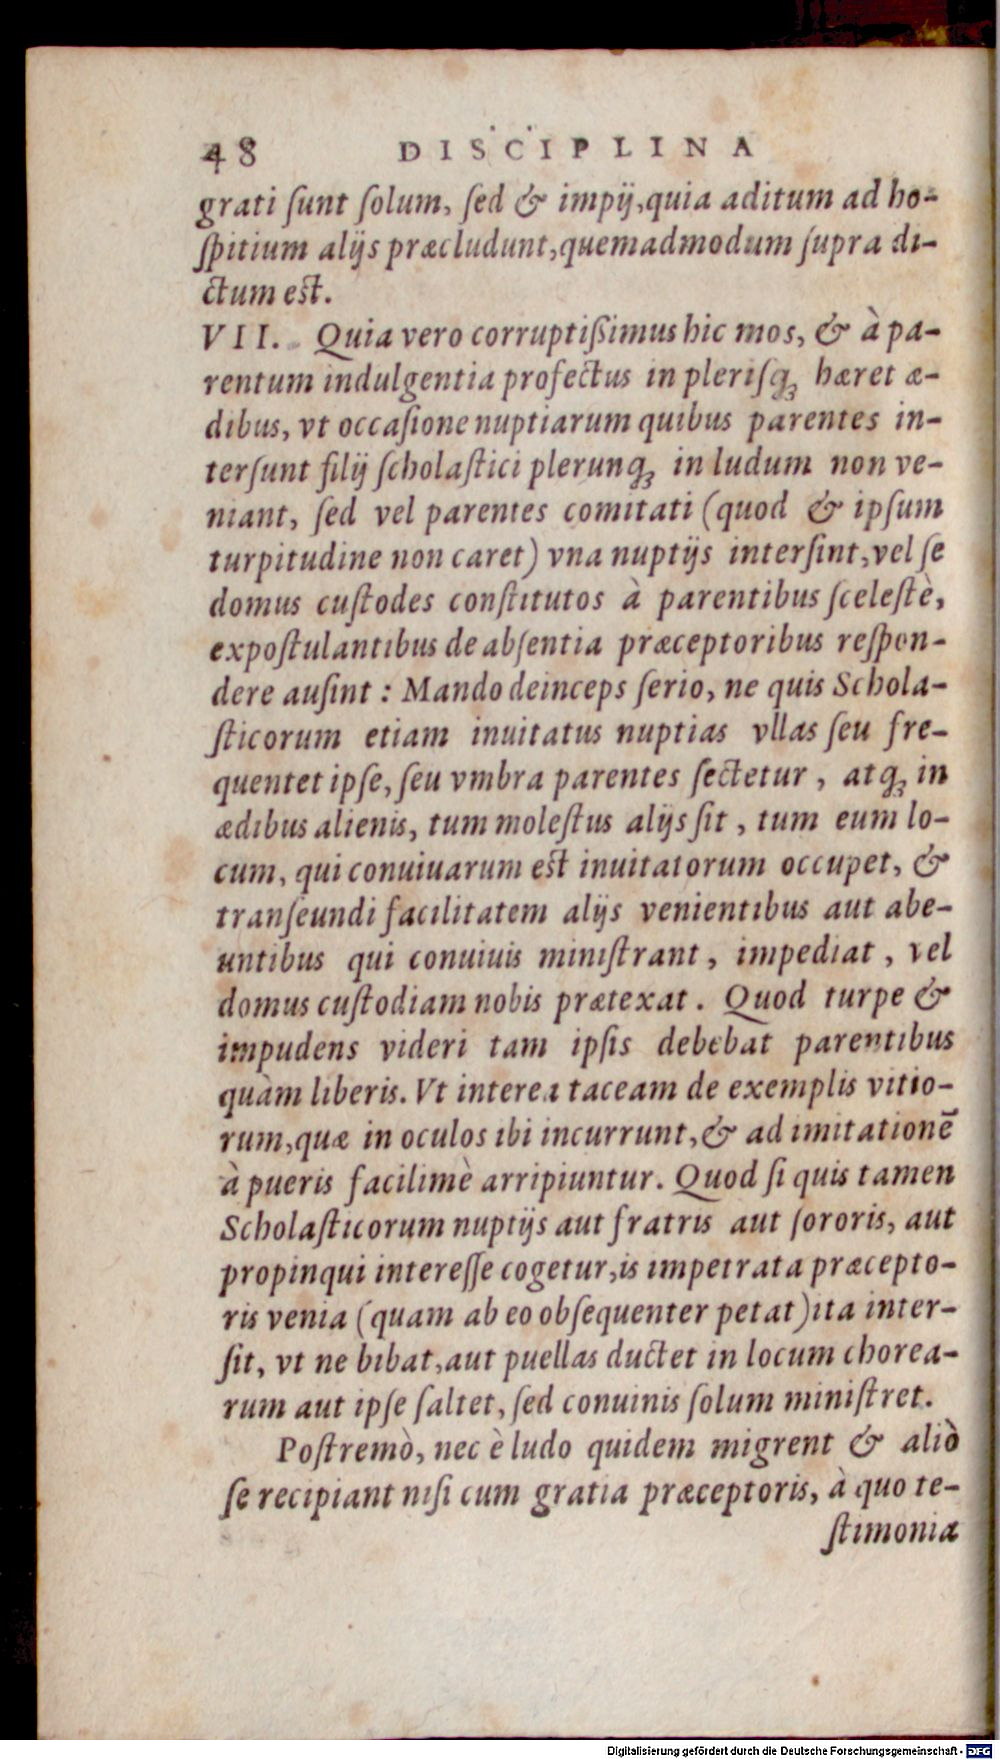 48 DISCIPLINA
grati ſunt ſolum, ſed & impij, quia aditum ad ho-
ſpitium alijs præcludunt, quemadmodum ſupra di-
ctum est.
VII. Quia vero corruptißimus hic mos, & à pa-
rentum indulgentia profectus in pleriſq; hæret æ-
dibus, vt occaſione nuptiarum quibus parentes in-
terſunt filij ſcholaſtici plerunq; in ludum non ve-
niant, ſed vel parentes comitati (quod & ipſum
turpitudine non caret) vna nuptijs interſint, vel ſe
domus cuſtodes conſtitutos à parentibus ſceleſtè,
expoſtulantibus de abſentia præceptoribus reſpon-
dere auſint : Mando deinceps ſerio, ne quis Schola-
ſticorum etiam inuitatus nuptias vllas ſeu fre-
quentet ipſe, ſeu vmbra parentes ſectetur, atq; in
ædibus alienis, tum moleſtus alijs ſit, tum eum lo-
cum, qui conuiuarum est inuitatorum occupet, &
tranſeundi facilitatem alijs venientibus aut abe-
untibus qui conuiuis miniſtrant, impediat, vel
domus cuſtodiam nobis prætexat. Quod turpe &
impudens videri tam ipſis debebat parentibus
quàm liberis. Vt interea taceam de exemplis vitio-
rum, quæ in oculos ibi incurrunt, & ad imitationē
à pueris facilimè arripiuntur. Quod ſi quis tamen
Scholaſticorum nuptijs aut fratris aut ſororis, aut
propinqui intereſſe cogetur, is impetrata præcepto-
ris venia (quam ab eo obſequenter petat) ita inter-
ſit, vt ne bibat, aut puellas ductet in locum chorea-
rum aut ipſe ſaltet, ſed conuinis ſolum miniſtret.
Poſtremò, nec è ludo quidem migrent & aliò
ſe recipiant niſi cum gratia præceptoris, à quo te-
ſtimonia
Digitalisierung gefördert durch die Deutsche Forschungsgemeinschaft - DFG